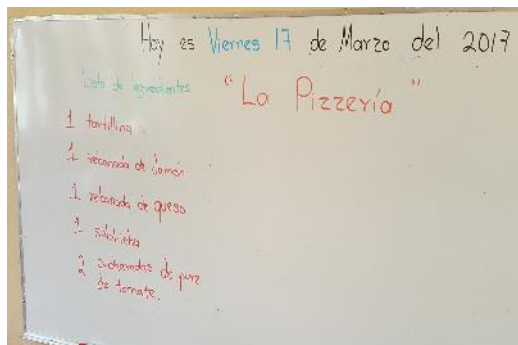 Hoy es Viernes 17 de Marzo del 2017
"La Pizzería"
Lista de ingredientes
1 tortillina
1 rebanada de Jamón
1 rebanada de queso
1 salchicha
2 cucharadas de pure
de tomate.